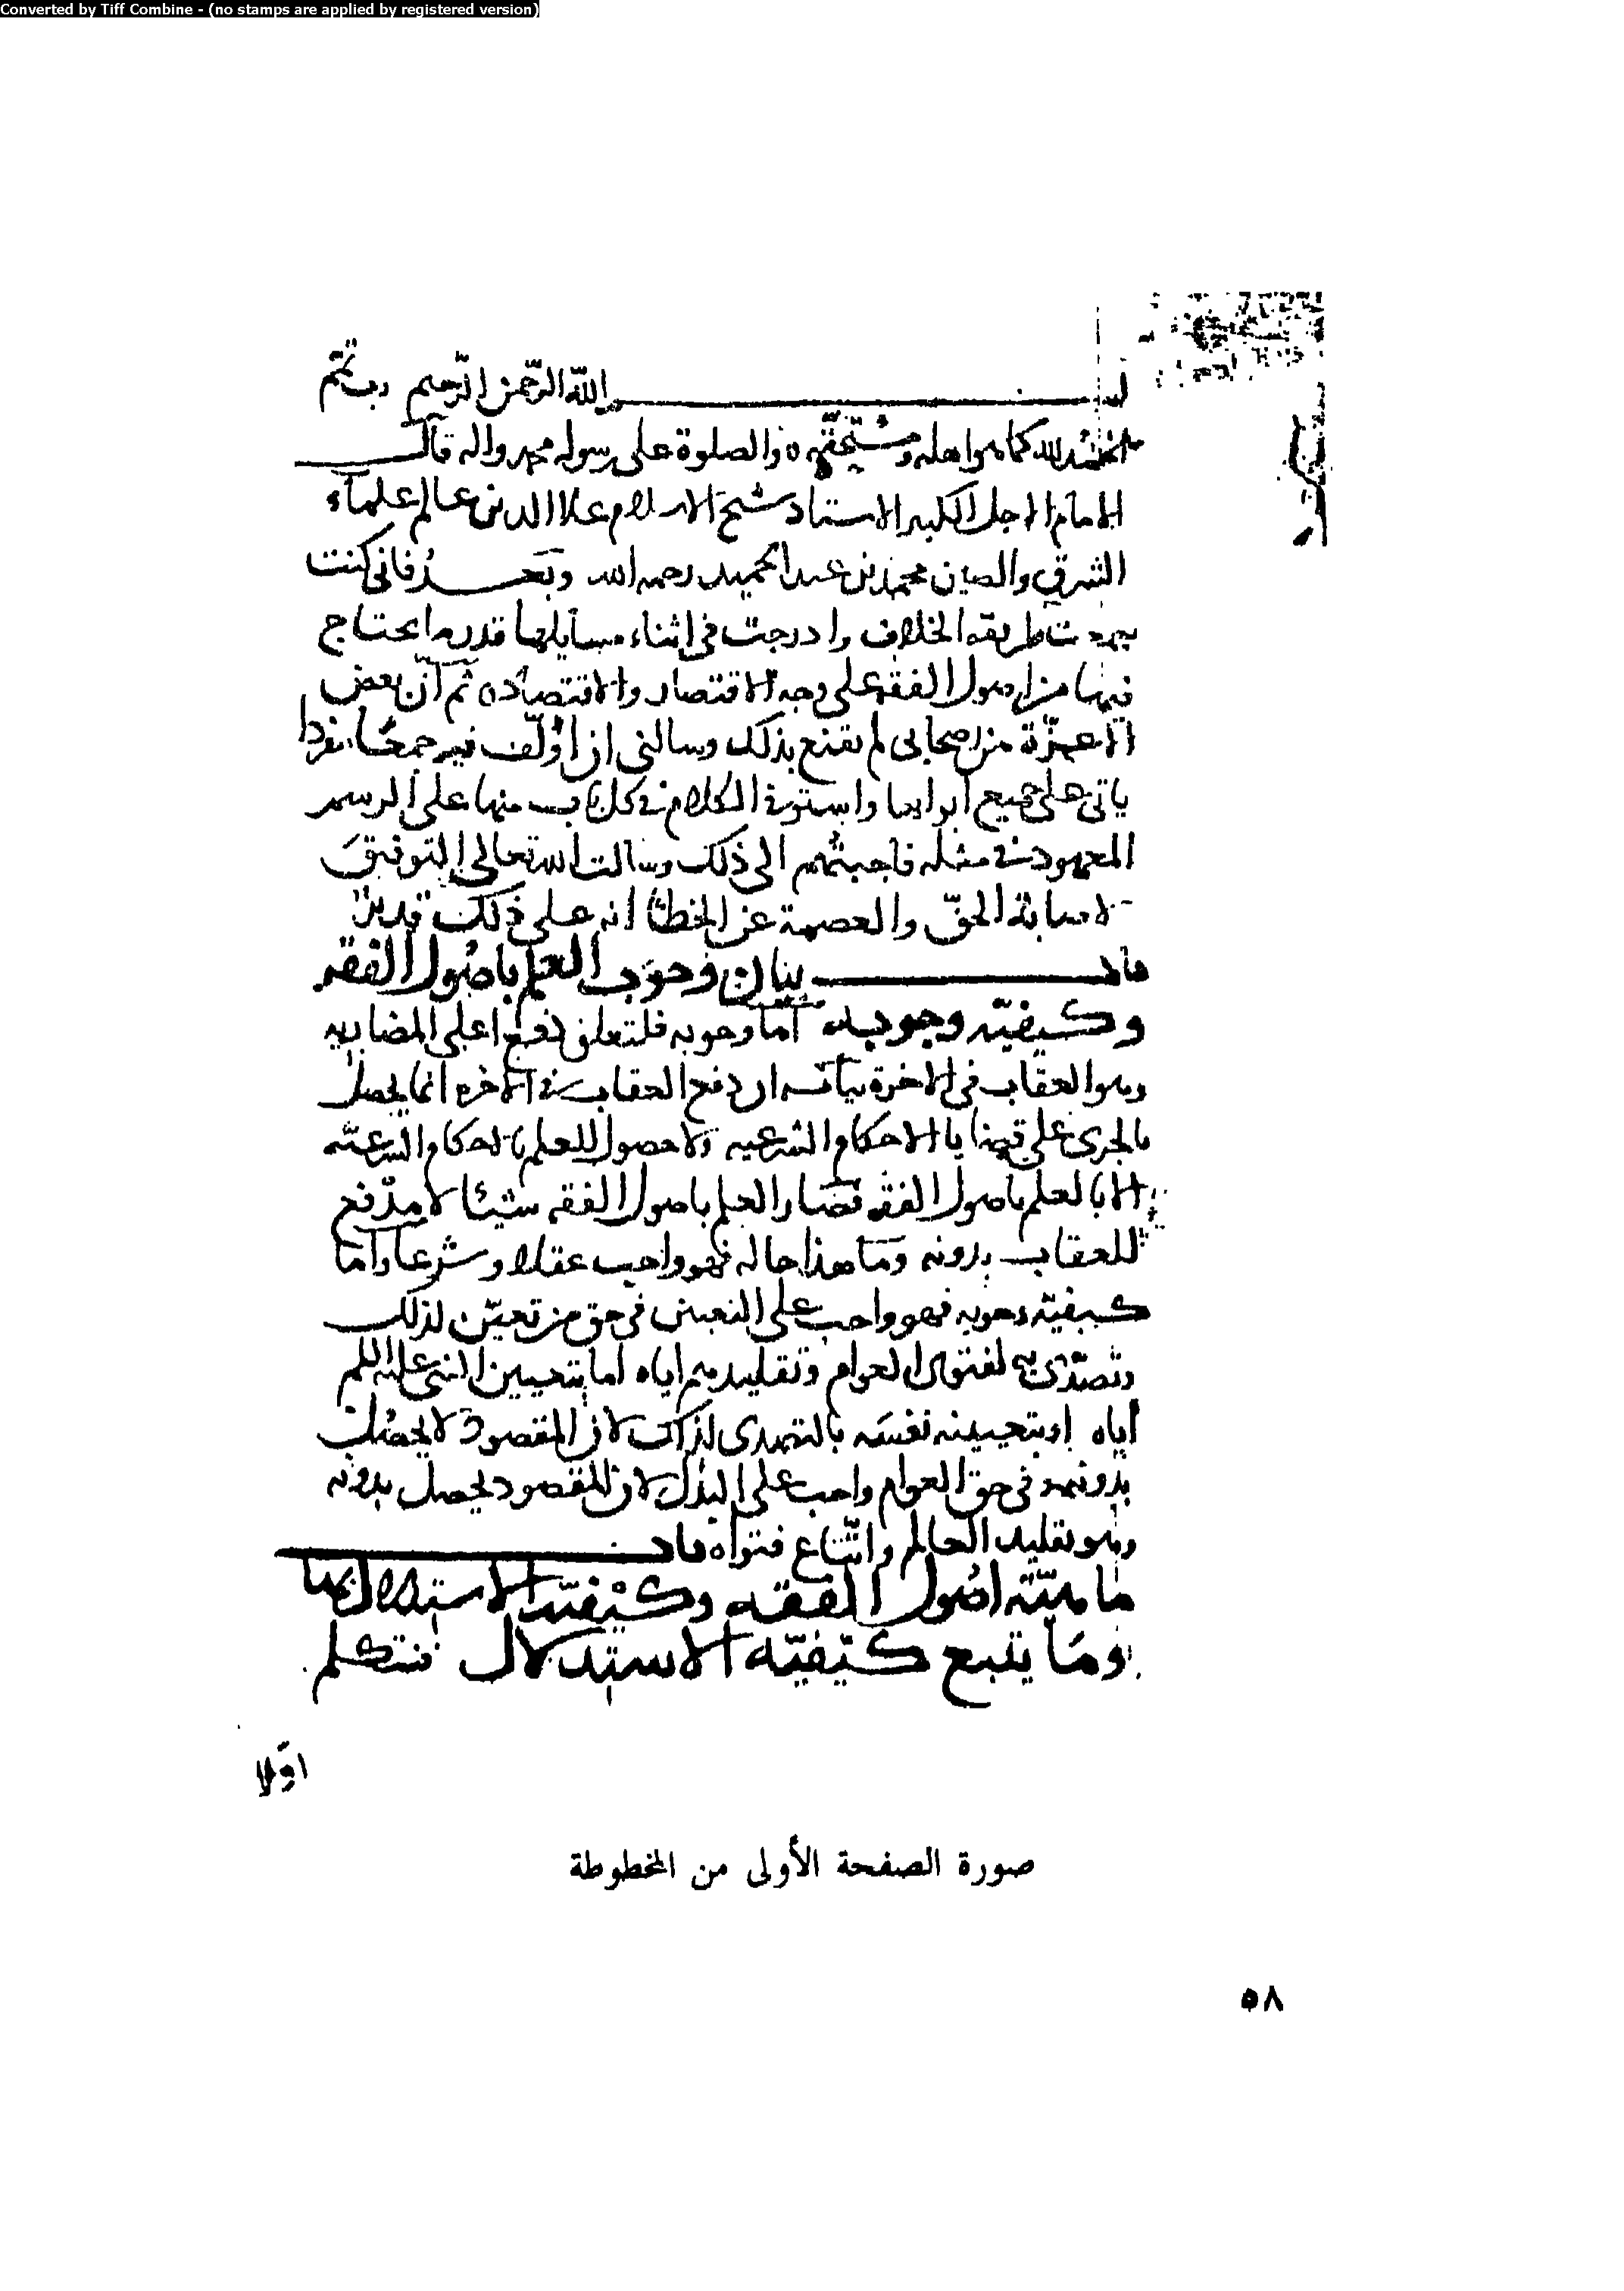 Converted by Tiff Combine - (no stamps are applied by registered version)
بسم الله الرحمن الرحيم رب تمم
الحمد لله كما هو اهله ومستحقه والصلوة على رسوله محمد واله قال
الامام الاجل الكبير الاستاد شيخ الاسلام علا الدين عالم علماء
الشرق والصين محمد بن عبد الحميد رحمه الله وبعد فانى كنت
طريقة الخلاف وادرجت فى اثناء مسايلها قدر ما يحتاج
فيها من اصول الفقه على وجه الاقتصار والاقتصاد ثم ان بعض
الاعزة من اصحابى لم يقنع بذلك وسالنى ان اؤلف فيه جمعا مفردا
ياتى على جميع ابوابها واستوفى الكلام فى كل باب منها على الرسم
المعهود فى مثله فاجبتهم الى ذلك وسالت الله تعالى التوفيق
لاصابة الحق والعصمة عن الخطأ انه على ذلك قدير
باب بيان وجوب العلم باصول الفقه
وكيفية وجوبه اما وجوبه فلتعلق دفع اعلى المضار به
وهو العقاب فى الاخرة بيانه ان دفع العقاب فى الاخرة انما يحصل
بالجرى على قضايا الاحكام الشرعية ولا حصول للعلم بالاحكام الشرعية
الا بالعلم باصول الفقه فصار العلم باصول الفقه شيئا لا مدفع
للعقاب بدونه وما هذا حاله فهو واجب عقلا وشرعا واما
كيفية وجوبه فهو واجب على التعيين فى حق من تعين لذلك
وتصدى لفتوى العوام وتقليدهم اياه اما بتعيين النبى عليه السلم
اياه او بتعيينه نفسه بالتصدى لذلك لان المقصود لا يحصل
بدونه وفى حق العوام واجب على البدل لان المقصود يحصل بدونه
وهو تقليد العالم واتباع فتواه باب
مائية اصول الفقه وكيفية الاستدلال بها
وما يتبع كيفية الاستدلال فنتكلم
اولا
صورة الصفحة الأولى من المخطوطة
٥٨